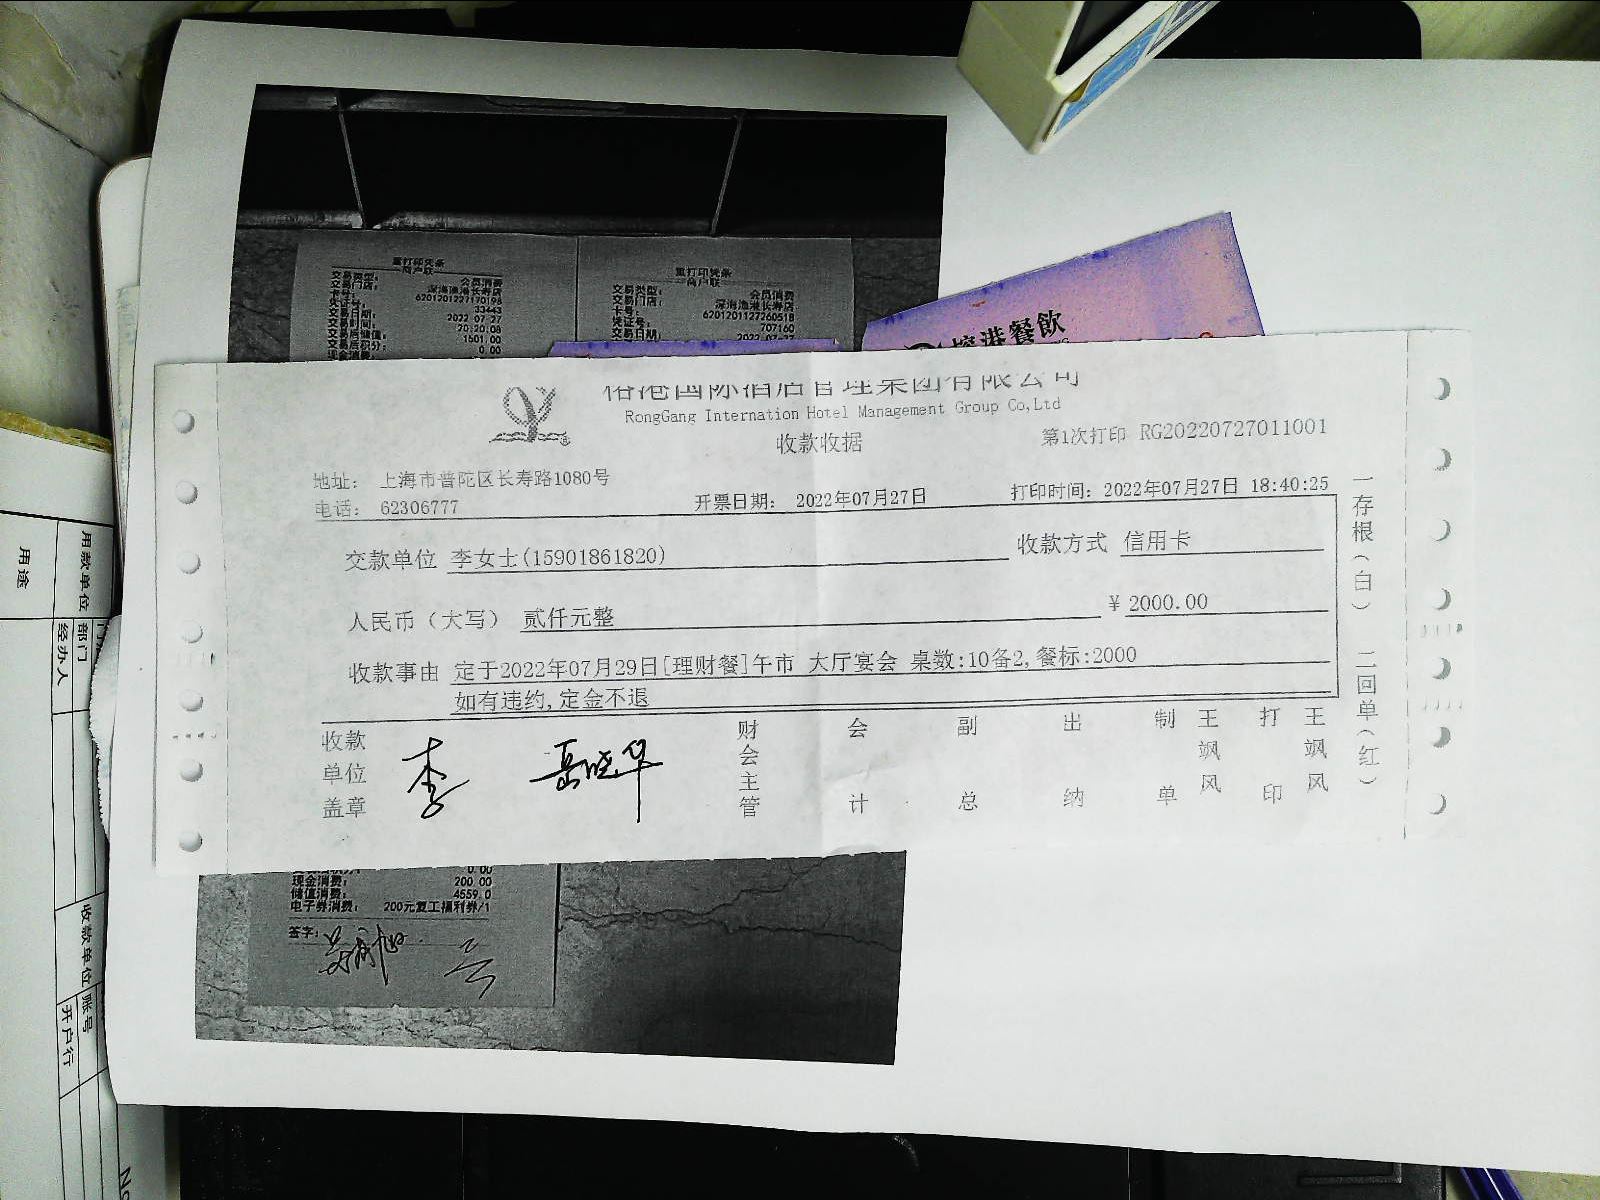 重打印凭条
商户联
交易类型: 会员消费
交易门店: 深海渔港长寿店
卡号: 6201201227170198
凭证号: 33443
交易日期: 2022-07-27
交易时间: 20:20:08
交易后储值: 1501.00
交易后积分: 0.00
重打印凭条
商户联
交易类型: 会员消费
交易门店: 深海渔港长寿店
卡号: 6201201127260518
凭证号: 707160
交易日期: 2022-07-27
港餐飲
国际酒店管理集团有限公司
RongGang Internation Hotel Management Group Co,Ltd
收款收据
第1次打印 RG20220727011001
地址: 上海市普陀区长寿路1080号
电话: 62306777
开票日期: 2022年07月27日
打印时间: 2022年07月27日 18:40:25
交款单位 李女士(15901861820)
收款方式 信用卡
人民币（大写） 贰仟元整
¥ 2000.00
收款事由 定于2022年07月29日[理财餐]午市 大厅宴会 桌数:10备2,餐标:2000
如有违约,定金不退
收款单位盖章
李 岳晓华
财会主管
会计
副总
出纳
制单
王飒风
打印
王飒风
一存根(白) 二回单(红)
现金消费: 200.00
储值消费: 4559.0
电子券消费: 200元复工福利券/1
签字:
用途
用款单位
部门
经办人
收款单位
账号
开户行